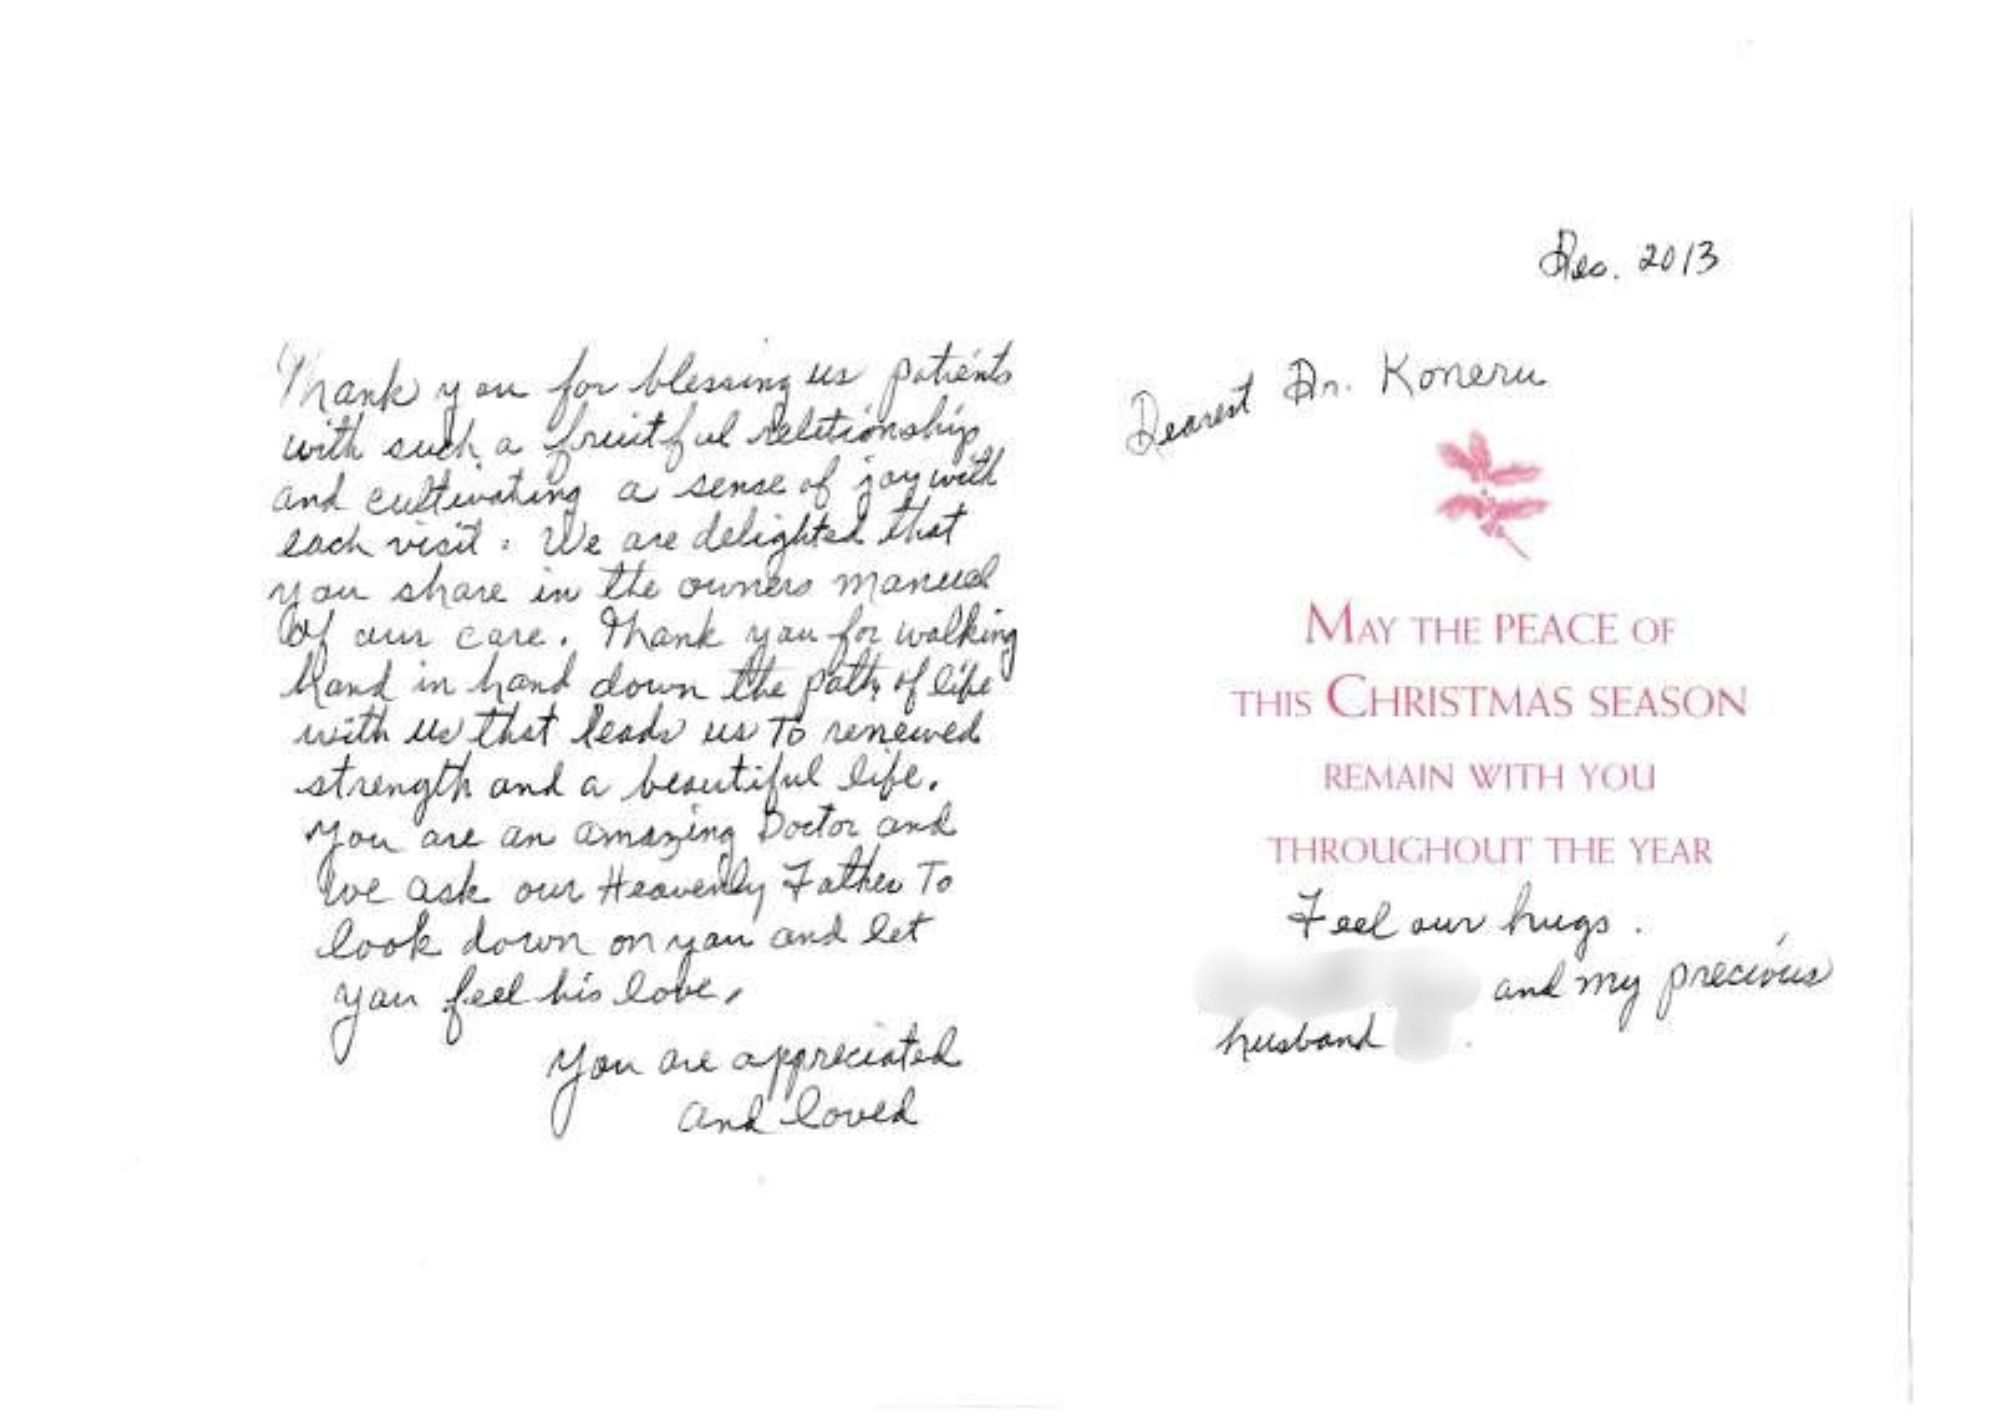 Thank you for blessing us patients
with such a fruitful relationship
and cultivating a sense of joy with
each visit. We are delighted that
you share in the owners manual
of our care. Thank you for walking
hand in hand down the path of life
with us that leads us to renewed
strength and a beautiful life.
You are an amazing Doctor and
we ask our Heavenly Father to
look down on you and let
you feel his love.
You are appreciated
and loved
Dec. 2013
Dearest Dr. Koneru
MAY THE PEACE OF
THIS CHRISTMAS SEASON
REMAIN WITH YOU
THROUGHOUT THE YEAR
Feel our hugs.
and my precious
husband